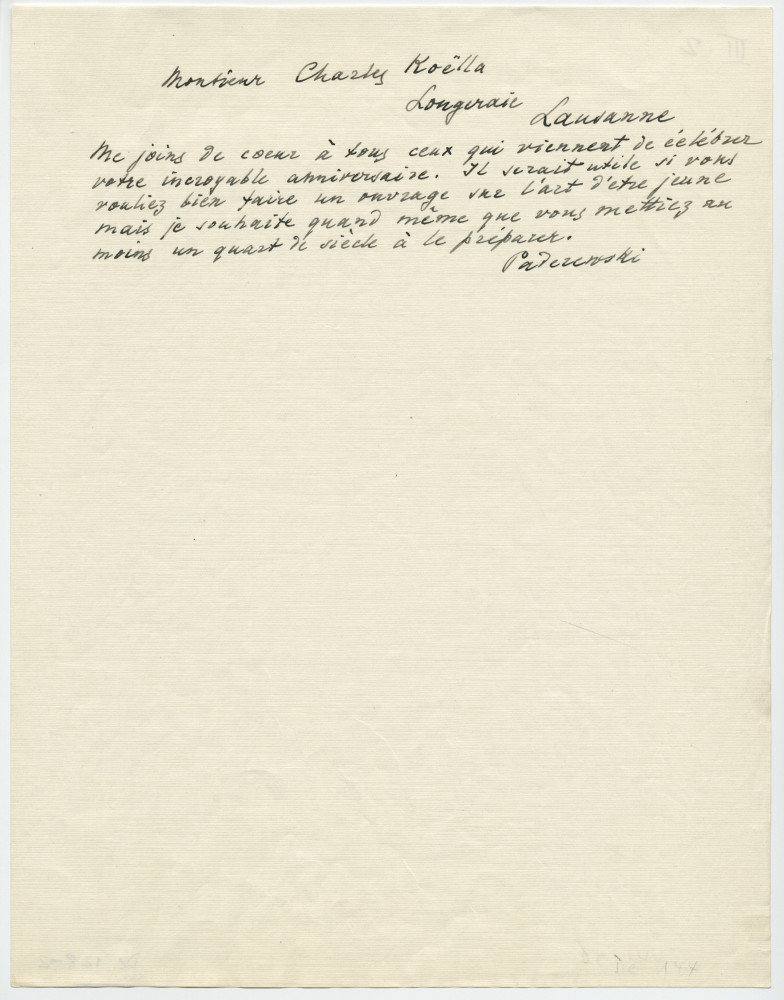 Monsieur Charles Koëlla
Longeraie Lausanne
Me joins de coeur à tous ceux qui viennent de célébrer
votre incroyable anniversaire. Il serait utile si vous
vouliez bien faire un ouvrage sur l'art d'être jeune
mais je souhaite quand même que vous mettiez au
moins un quart de siècle à le préparer.
Paderewski